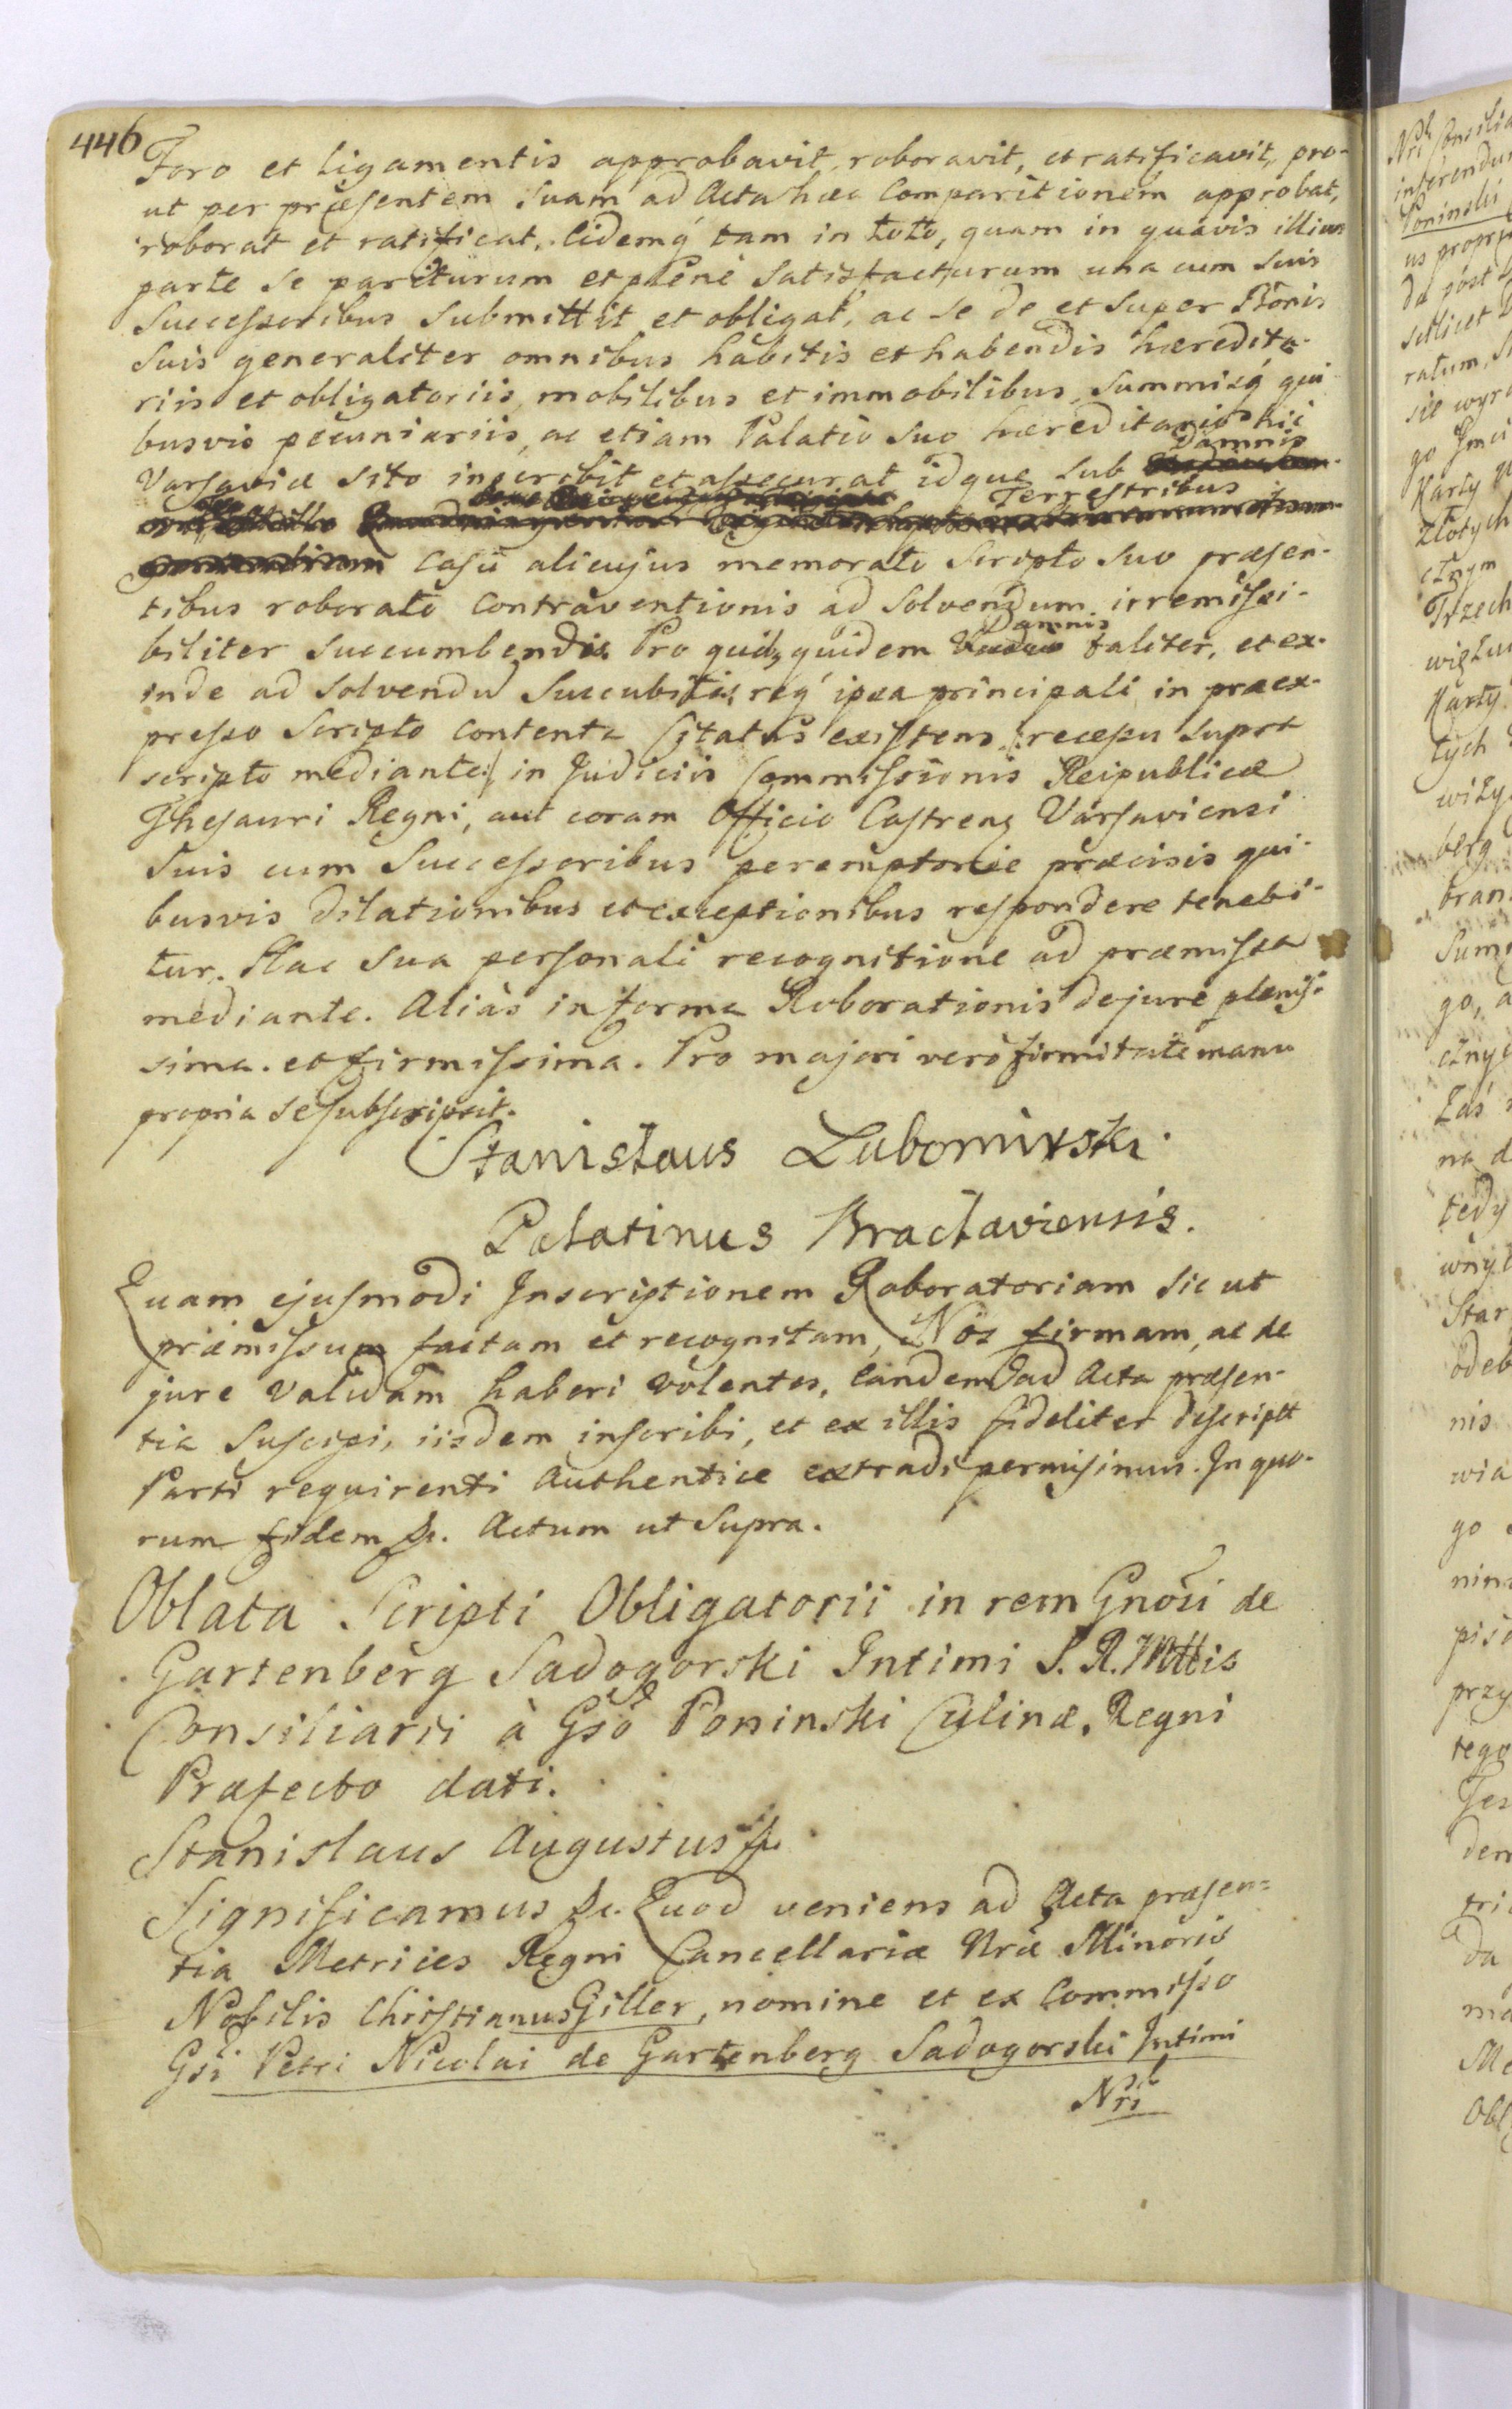 446
Foro et ligamentis approbavit, roboravit, et ratificavit, pro-
ut per præsentem Suam ad Acta hæc Comparitionem approbat,
roborat et ratificat. Eidemq́ tam in toto, quam in quavis illius
parte se pariturum et plenè Satisfacturum una cum Suis
Successoribus Submittit et obligat, ac se de et Super Bonis
Suis generaliter omnibus habitis et habendis hæredita-
riis et obligatoriis, mobilibus et immobilibus, Summisq́ qui-
busvis pecuniariis, ac etiam Palatio Suo hæreditario hic
Varsaviæ Sito inscribit et assecurat idque Sub Damnis
Terrestribus
Casu alicujus memorato Scripto Suo præsen-
tibus roborato Contraventionis ad Solvendum irremissi-
biliter Succumbendis. Pro quibꝫ quidem Damnis taliter, et ex-
inde ad Solvendũ Succubitis, req́ ipsa principali in præex-
presso Scripto contenta Citatus existens /: recessu supra
scripto mediante :/ in Judiciis Commissionis Reipublicæ
Thesauri Regni, aut coram Officio Castrenꝫ Varsaviensi
Suis cum Successoribus peremptorie præcisis qui-
busvis dilationibus et exceptionibus respondere tenebi-
tur. Hac Sua personali recognitione ad præmissa
mediante. Aliàs in forma Roborationis de jure plenis-
sima et firmissima. Pro majori verò firmitate manu
propria se subscripsit.
Stanislaus Lubomirski
Palatinus Braclaviensis.
Quam ejusmodi Inscriptionem Roboratoriam sic ut
præmissum factam et recognitam, Nos firmam, ac de
jure Validam haberi volentes, Eandem ad Acta præsen-
tia Suscipi, iisdem inscribi, et ex illis fideliter descriptt
Parti requirenti Authentice extradi permisimus. In quo-
rum fidem &c. Actum ut Supra.
Oblata Scripti Obligatorii in rem Gnosi de
Gartenberg Sadogorski Intimi S. R. Mttis
Consiliarii à Gsō Poninski Culinæ Regni
Præfecto dati.
Stanislaus Augustus &c.
Significamus &c. Quod veniens ad Acta præsen-
tia Metrices Regni Cancellariæ Nrӕ Minoris
Nobilis Christianus Giller, nomine et ex Commisso
Gsi Petri Nicolai de Gartenberg Sadogorski Intimi
Nri